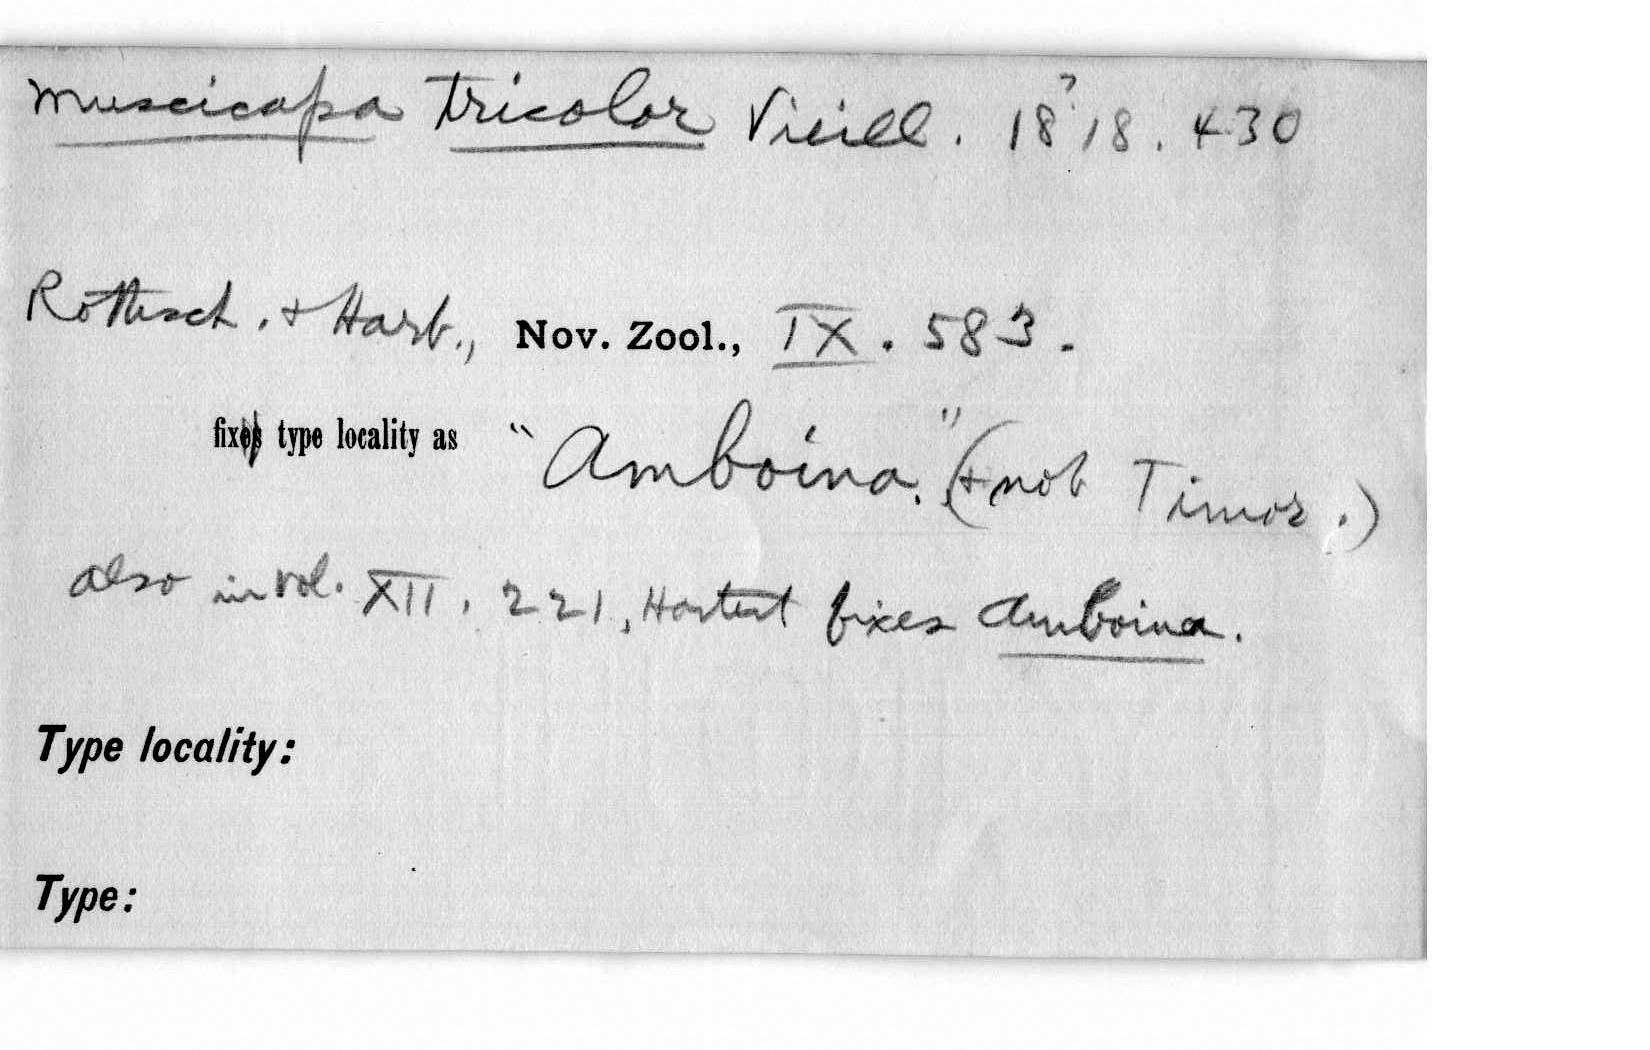 Muscicapa tricolor Vieill. 18?18. 430
Rothsch. & Hart., Nov. Zool., IX. 583.
fixes type locality as "Amboina." (& not Timor.)
also in vol. XII. 221, Hartert fixes Amboina.
Type locality:
Type: